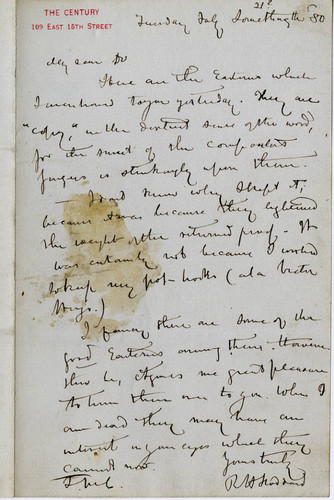 THE CENTURY
109 EAST 15TH STREET
Tuesday July Somethingth 80
My dear Dr
Here are the which
I mentioned to you yesterday. They are
"copy," in the strictest sense of the word,
for the smut of the compositor's
fingers is strikingly upon them.
I don't know why I kept it,
because it was because they lightened
the weight of the returned proof. It
was certainly not because I wished
to keep my pot-hooks (à la Victor
Hugo.)
I fancy there are some of the
good among them. However
this be, it gives me great pleasure
to turn them over to you. When I
am dead they may have an
interest in your eyes which they
cannot now.
Yours truly
R H Stoddard